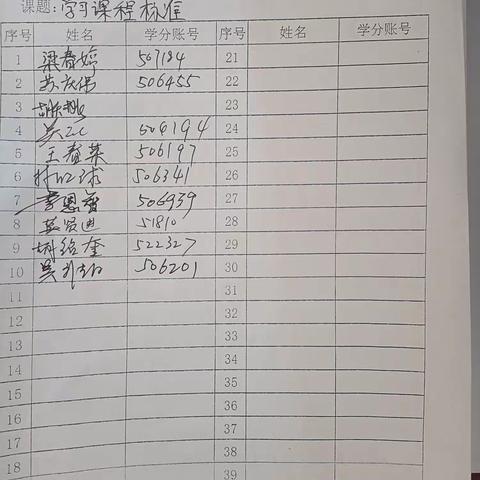 课题:学习课程标准
序号 姓名 学分账号 序号 姓名 学分账号
1 梁春婷 507184 21
2 苏庆保 506455 22
3 23
4 506194 24
5 王春菜 506197 25
6 506341 26
7 李恩智 506939 27
8 51810 28
9 胡绍奎 522327 29
10 吴 506201 30
11 31
12 32
13 33
14 34
15 35
16 36
17 37
18 38
39